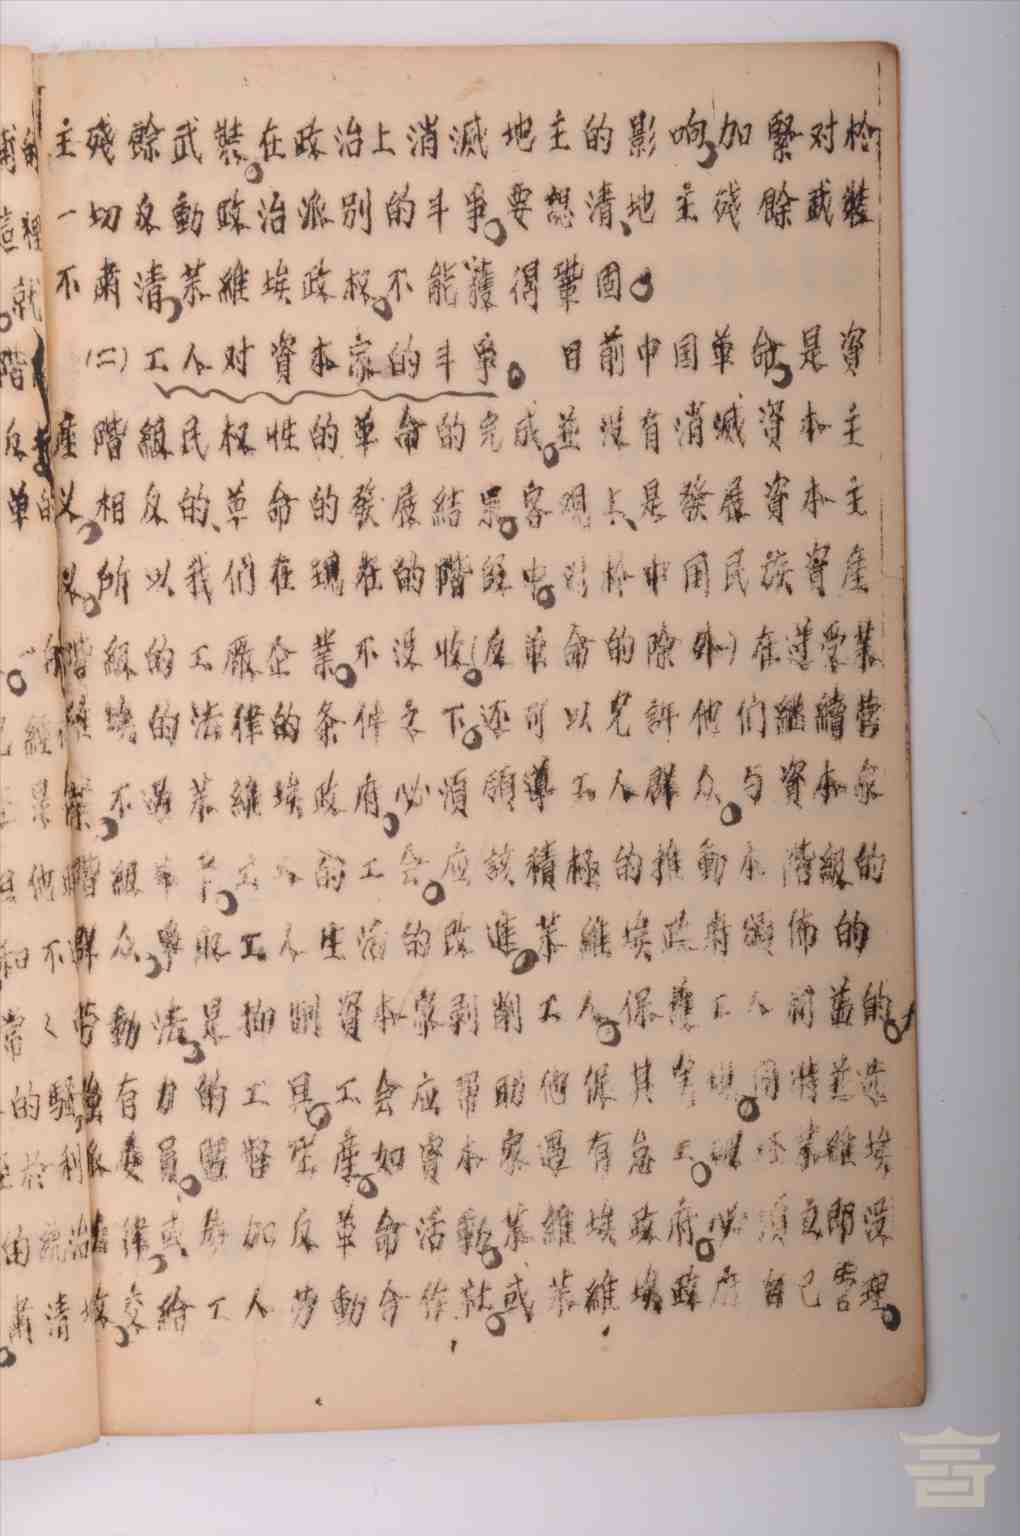 主殘餘武裝。在政治上消滅地主的影响,加緊对於
一切反動政治派別的斗爭。要想清地主殘餘武裝
不肅清,苏維埃政权,不能獲得鞏固。
(二)工人对資本家的斗爭。 目前中国革命,是資
產階級民权性的革命的完成。並沒有消滅資本主
义。相反的、革命的發展結果。客观上、是發展資本主
义。所以我們在現在的階段中。对於中国民族資產
階級的工廠企業。不沒收。(反革命的除外)在遵受苏
維埃的法律的条件之下。还可以允許他們継續营
業,不過苏維埃政府。必須領導工人群众。与資本家
斗爭。工人的工会。应該積極的推動本階級的
群众,爭取工人生活的改進。苏維埃政府頒佈的
劳動法,是抑制資本家剥削工人。保護工人利益的。
強有力的工具。工会应帮助他保其实現。同時並选
派委員。監督生產。如資本家遇有怠工。破坏苏維埃
法律,或参加反革命活動。苏維埃政府。必須立即沒
收。交給工人劳動合作社。或苏維埃政府自己管理。